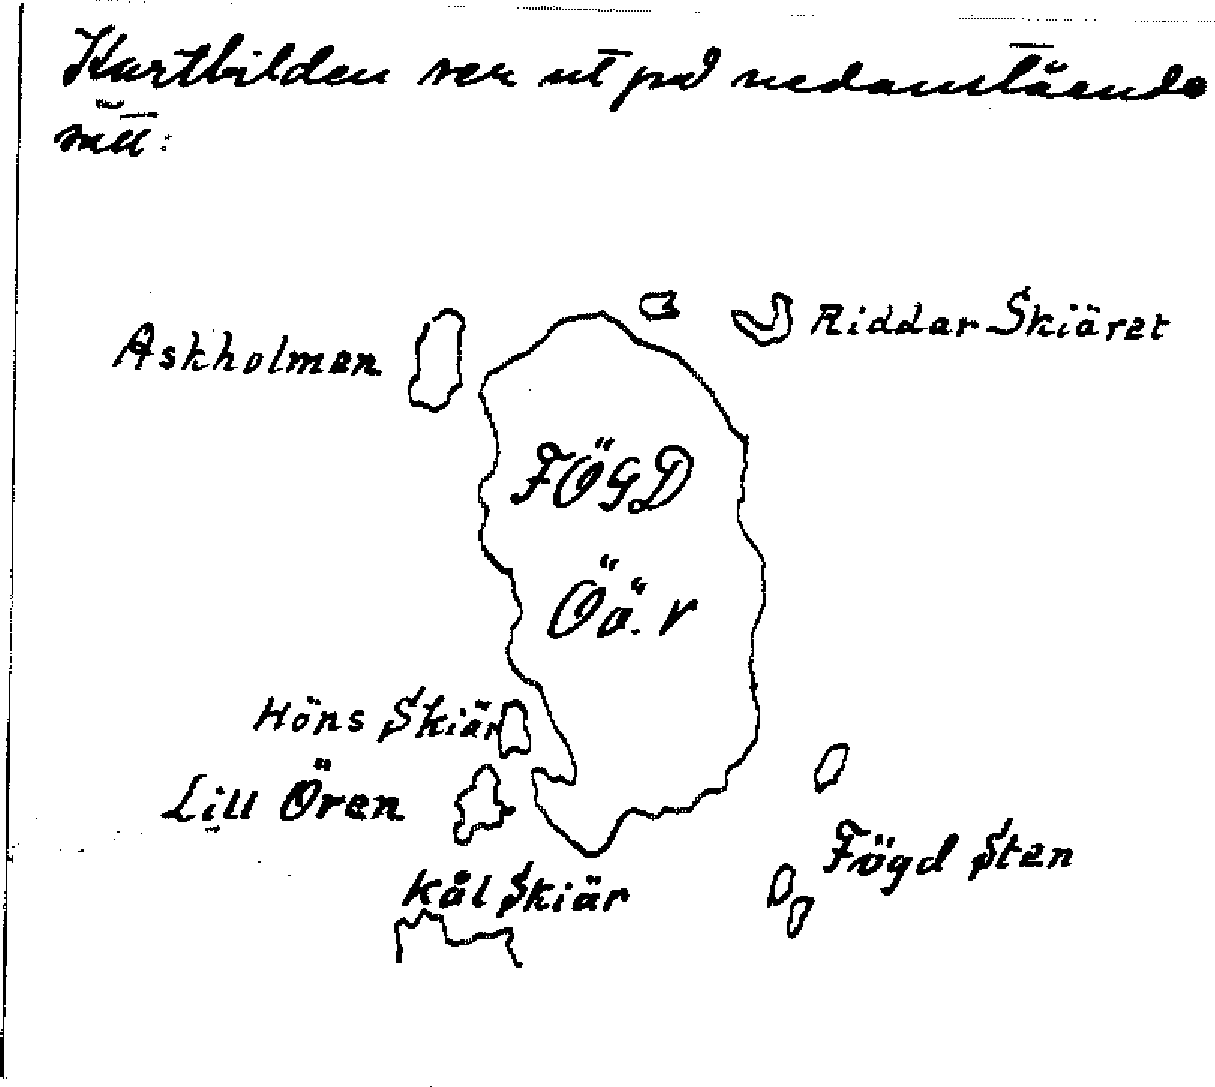 Kartbilden ser ut på nedanstående
sätt:
Riddar Skiäret
Askholmen
FÖGD
Öä.r
Höns Skiär
Lill Ören
Fögd Sten
Kål Skiär